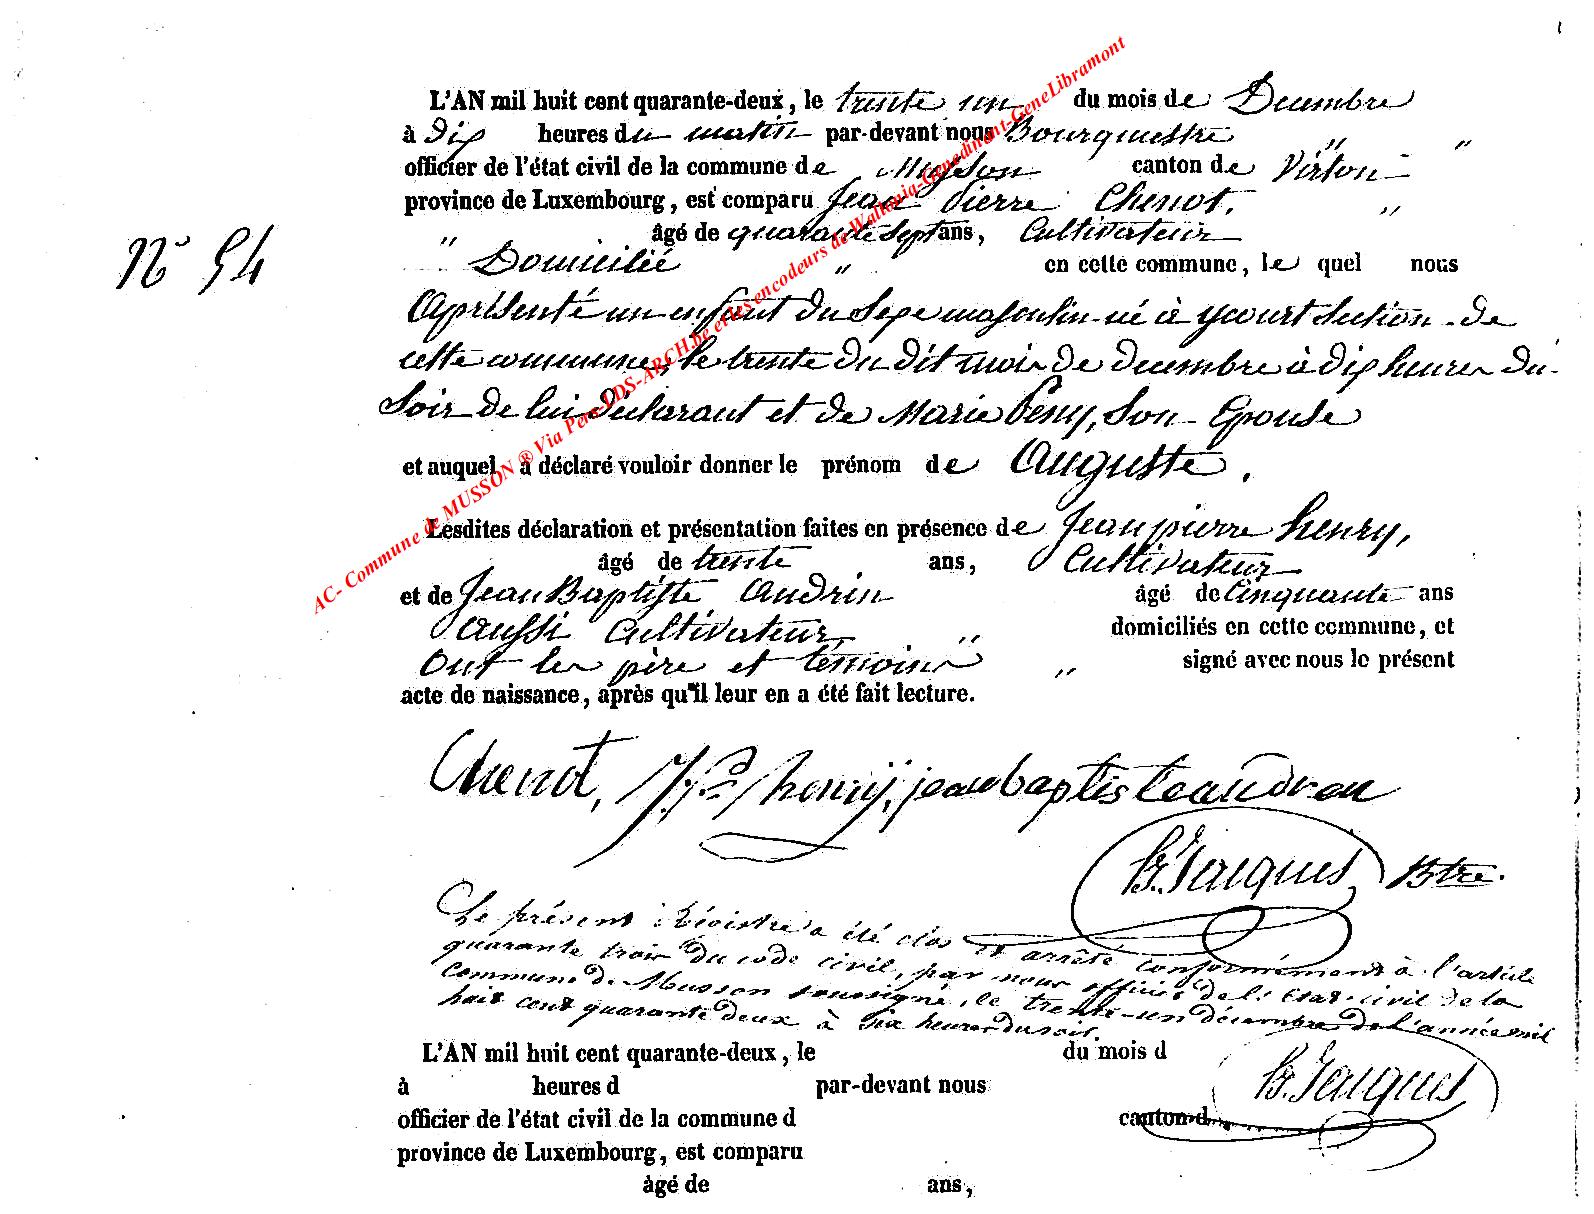 L'AN mil huit cent quarante-deux, le trente un du mois de Decembre
à dix heures du matin par-devant nous Bourguestre " "
officier de l'état civil de la commune de Musson canton de Virton
province de Luxembourg, est comparu Jean Pierre Chenot, "
" âgé de quarante Sept ans, Cultivateur
N° 54
Domicilié " en cette commune, le quel nous
a présenté un enfant du Sexe masculin né à ycourt section de
cette commune, le trente du dit mois de decembre à dix heures du
Soir de lui déclarant et de Marie Peny, Son Epouse
et auquel a déclaré vouloir donner le prénom de Auguste.
Lesdites déclaration et présentation faites en présence de Jean pierre henry,
âgé de trente ans, Cultivateur
et de Jean Baptiste Andrin âgé de Cinquante ans
aussi Cultivateur, " domiciliés en cette commune, et
Ont les père et témoins " signé avec nous le présent
acte de naissance, après qu'il leur en a été fait lecture.
Chenot, J.P. henrÿ, jean baptiste
B. Jacques, Btre.
Le présent Régistre a été clos et arrêté conformément à l'article
quarante trois du code civil, par nous officier de l'état-civil de la
commune de Musson soussigné, le trente-un décembre de l'année mil
huit cent quarante deux à six heures du soir.
B. Jacques
L'AN mil huit cent quarante-deux, le du mois d
à heures d par-devant nous
officier de l'état civil de la commune d canton d
province de Luxembourg, est comparu
âgé de ans,
AC- Commune de MUSSON ® Via Pers LDS-ARCH.be et les encodeurs de Wallonia-Genedinant-GeneLibramont